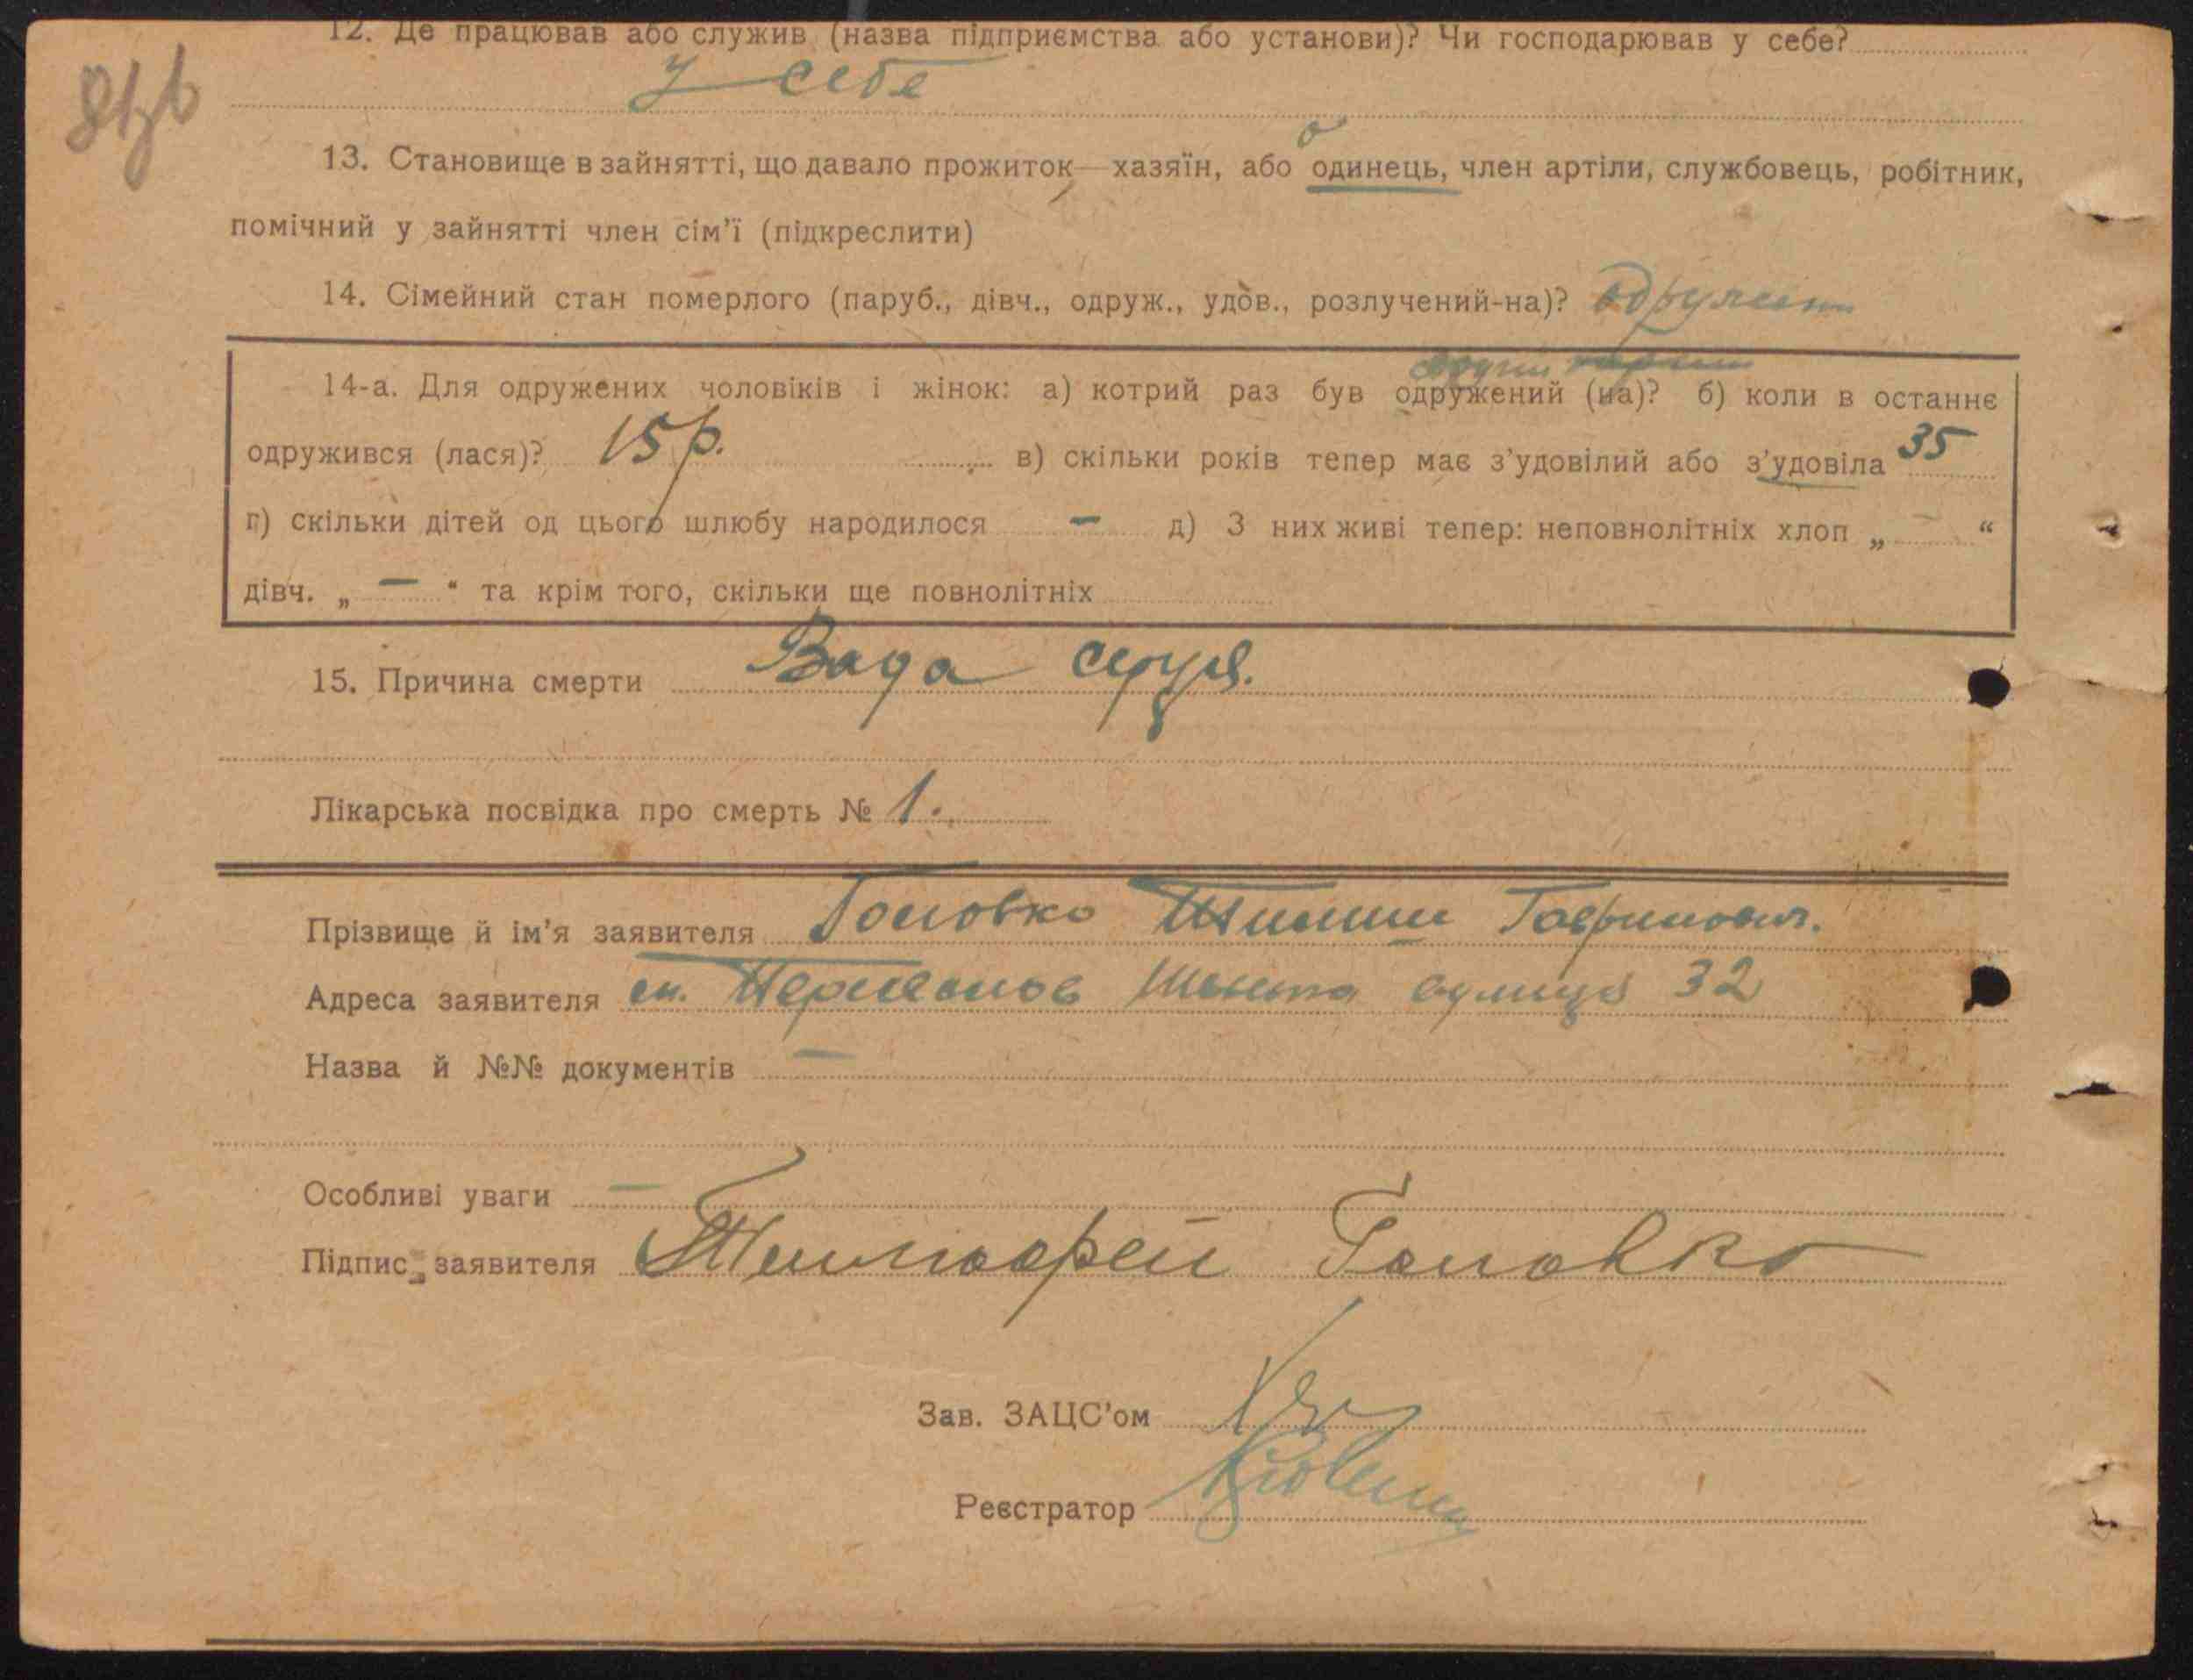 12. Де працював або служив (назва підприємства або установи)? Чи господарював у себе?
у себе
13. Становище в зайнятті, що давало прожиток—хазяїн, або одинець, член артіли, службовець, робітник,
помічний у зайнятті член сім'ї (підкреслити)
14. Сімейний стан померлого (паруб., дівч., одруж., удов., розлучений-на)?
14-а. Для одружених чоловіків і жінок: а) котрий раз був одружений (на)? б) коли в останнє
одружився (лася)? 15 р. в) скільки років тепер має з'удовілий або з'удовіла 35
г) скільки дітей од цього шлюбу народилося — д) З них живі тепер: неповнолітніх хлоп „ — “
дівч. „ — “ та крім того, скільки ще повнолітніх
15. Причина смерти Вада серця.
Лікарська посвідка про смерть № 1.
Прізвище й ім'я заявителя Головко Гаврилович.
Адреса заявителя вулиця 32
Назва й №№ документів —
Особливі уваги —
Підпис заявителя Головко
Зав. ЗАЦС'ом
Реєстратор